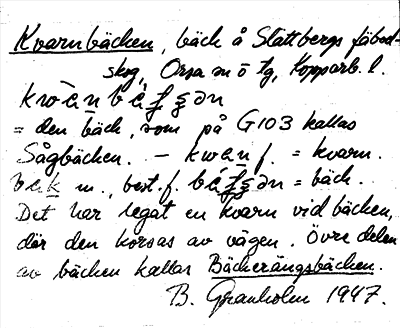 Kvarnbäcken, bäck å Slättbergs fäbod-
skog, Orsa sn ö tg, Kopparb. l.
= den bäck, som på G103 kallas
Sågbäcken. – f. = kvarn.
m., best. f. = bäck.
Det har legat en kvarn vid bäcken,
där den korsas av vägen. Övre delen
av bäcken kallas Bäckerängsbäcken.
B. Granholm 1947.